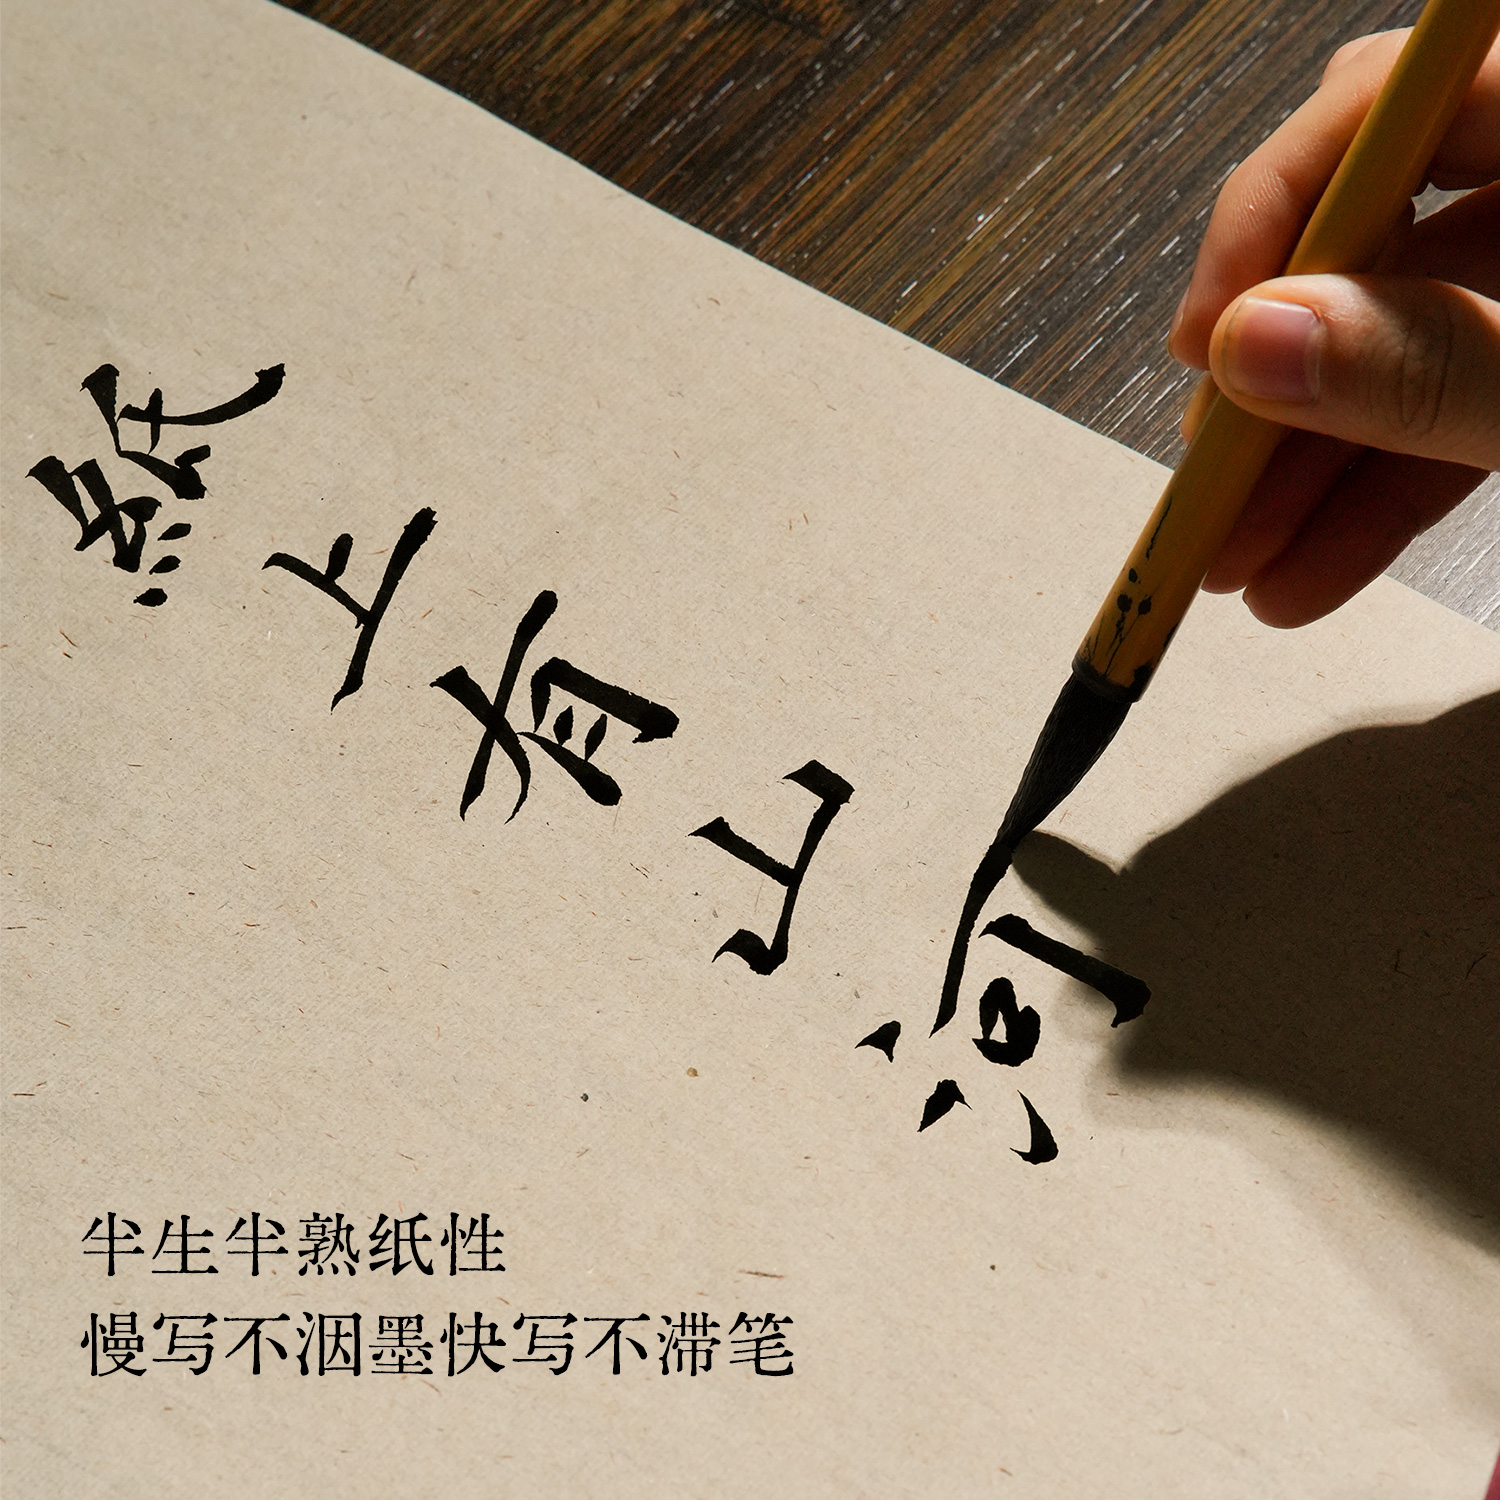 紙上有山河
半生半熟纸性
慢写不洇墨快写不滞笔